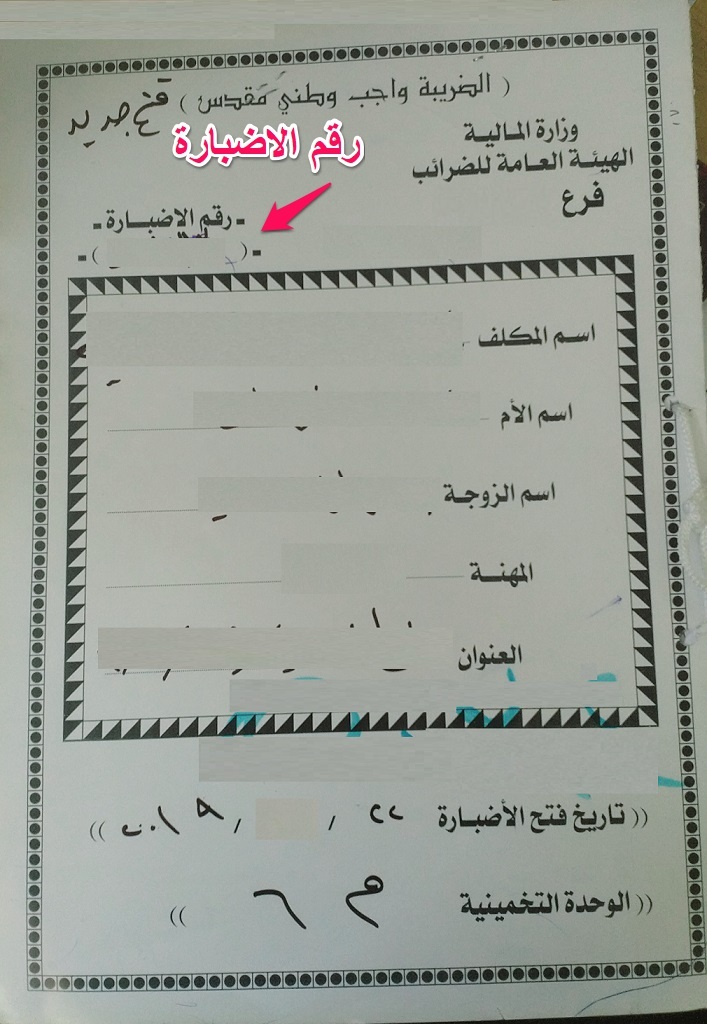 ( الضريبة واجب وطني مقدس )
فتح جديد
رقم الاضبارة
وزارة المالية
الهيئة العامة للضرائب
فرع
- رقم الإضبارة -
اسم المكلف
اسم الأم
اسم الزوجة
المهنة
العنوان
(( تاريخ فتح الأضبارة ٢٢ / /
(( الوحدة التخمينية م ))